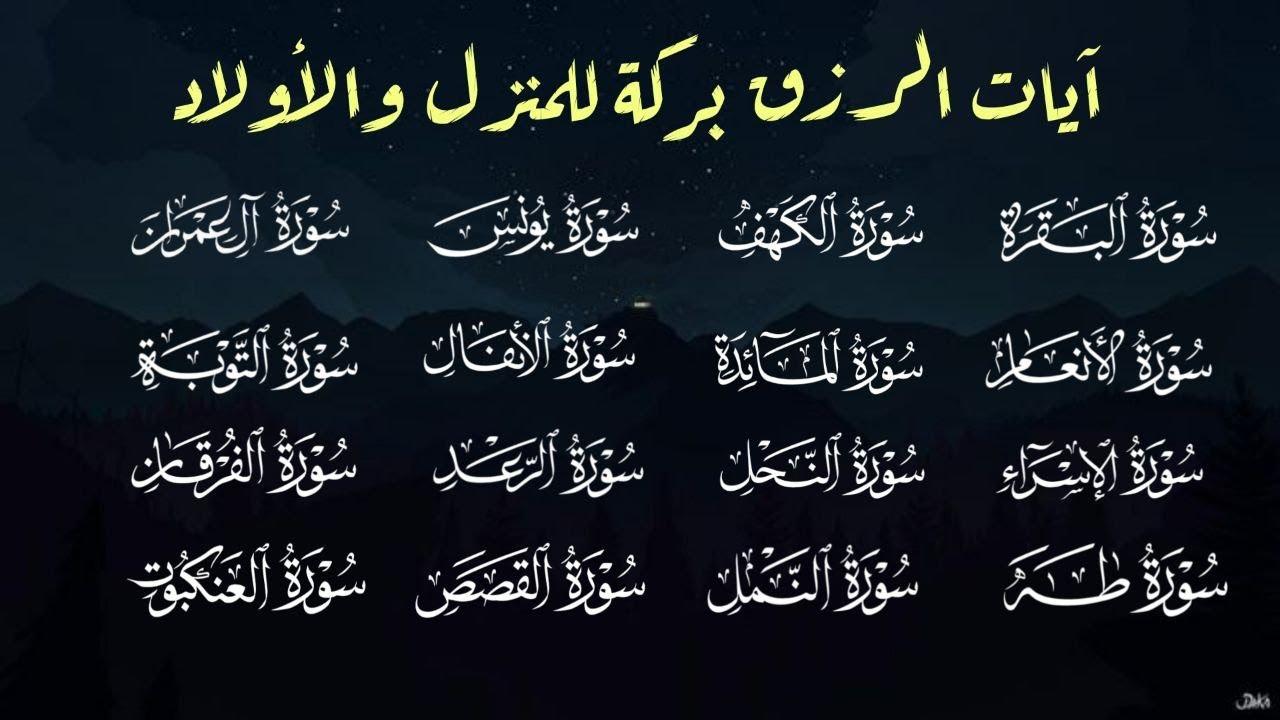 آيات الرزق بركة للمنزل والأولاد
سُورَةُ البَقَرَةِ سُورَةُ الكَهْفِ سُورَةُ يُونُسَ سُورَةُ آلِ عِمْرَانَ
سُورَةُ الأَنْعَامِ سُورَةُ المَائِدَةِ سُورَةُ الأَنفَالِ سُورَةُ التَّوْبَةِ
سُورَةُ الإِسْرَاءِ سُورَةُ النَّحْلِ سُورَةُ الرَّعْدِ سُورَةُ الفُرْقَانِ
سُورَةُ طه سُورَةُ النَّمْلِ سُورَةُ القَصَصِ سُورَةُ العَنكَبُوتِ